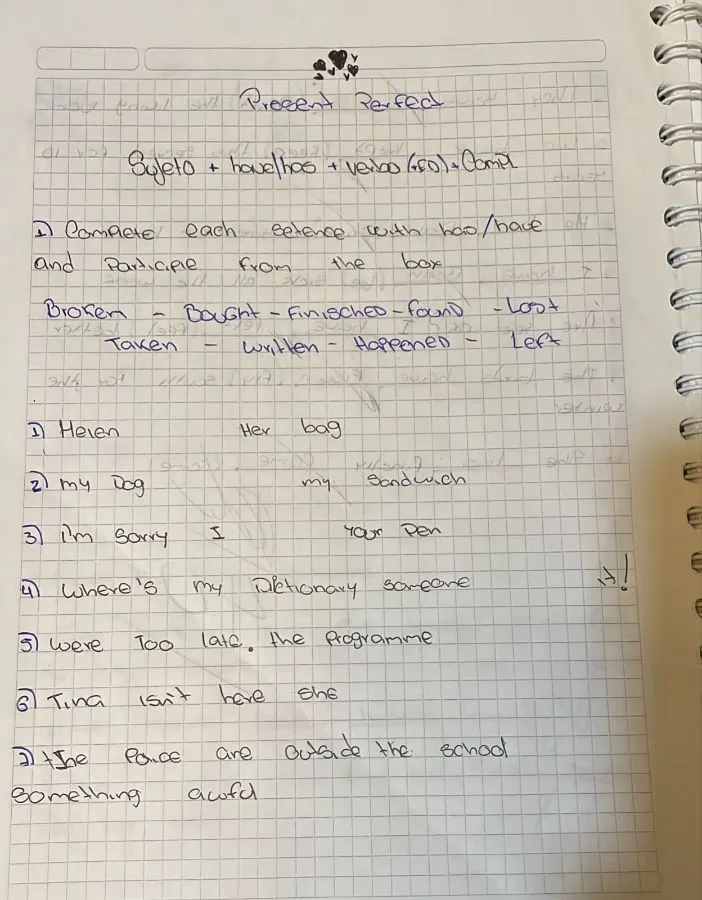 Present Perfect
Sujeto + have/has + verbo (+ED) + Compl
1) Complete each setence with has/have
and Participle from the box
Broken - Bought - Finisched - found - Lost
Taken - written - Happened - Left
1) Helen Her bag
2) my Dog my sandwich
3) I'm sorry I your pen
4) Where's my Dictionary someone it!
5) were Too late. the Programme
6) Tina isn't here she
7) the Police are outside the school
something